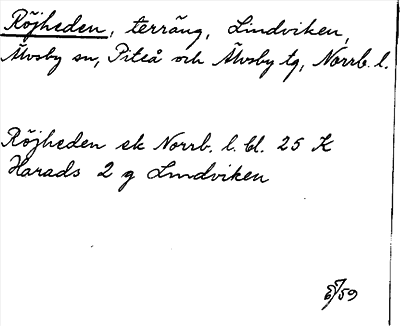 Röjheden, terräng, Lindviken,
Älvsby sn, Piteå och Älvsby tg, Norrb. l.
Röjheden ek Norrb. l. bl. 25 K
Harads 2 g Lindviken